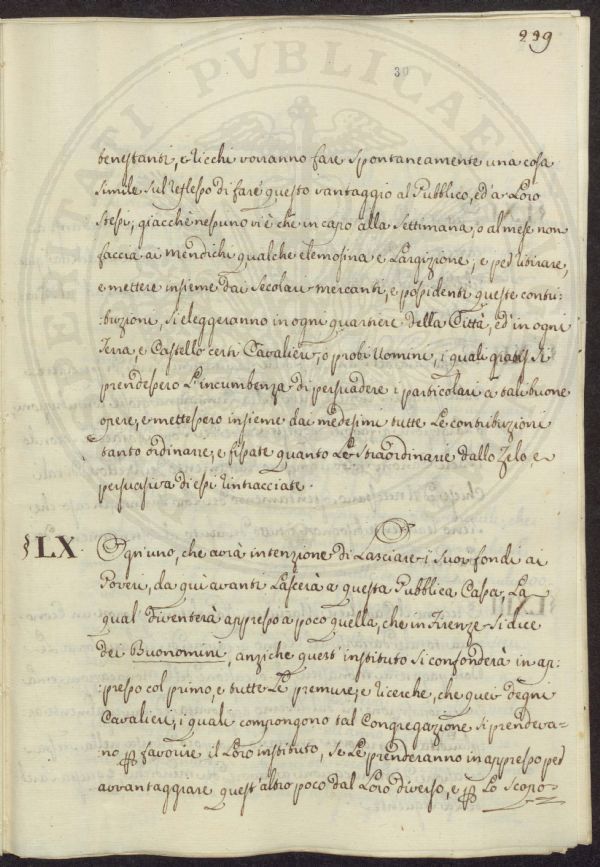 239
30
benestanti, e ricchi vorranno fare spontaneamente una cosa
simile sul riflesso di fare questo vantaggio al Pubblico, ed a Loro
stessi; giacchè nessuno vi è che in capo alla Settimana, o al mese non
faccia ai mendichi qualche elemosina e Largizione; e per tirare,
e mettere insieme dai Secolari mercanti, e possidenti queste contri:
:buzioni, si eleggeranno in ogni quartiere della Città, ed in ogni
Terra, e Castello certi Cavalieri, o probi Uomini, i quali gratis si
prendessero L'incumbenza di persuadere i particolari a tali buone
opere, e mettessero insieme dai medesimi tutte Le contribuzioni
tanto ordinarie, e fissate quanto Le straordinarie dallo Zelo, e
persuasiva di essi rintracciate.
§LX. Ogn'uno, che avrà intenzione di Lasciare i suoi fondi ai
Poveri, da qui avanti Lascerà a questa Pubblica Cassa, La
qual diventerà appresso a poco quella, che in Firenze si dice
dei Buonomini, anzi che quest'instituto si confonderà in ap:
:presso col primo, e tutte Le premure, e ricerche, che quei degni
Cavalieri, i quali compongono tal Congregazione si prendeva=
no ꝑ favorire il Loro instituto, se Le prenderanno in appresso per
avvantaggiare quest'altro poco dal Loro diverso, e ꝑ Lo scopo